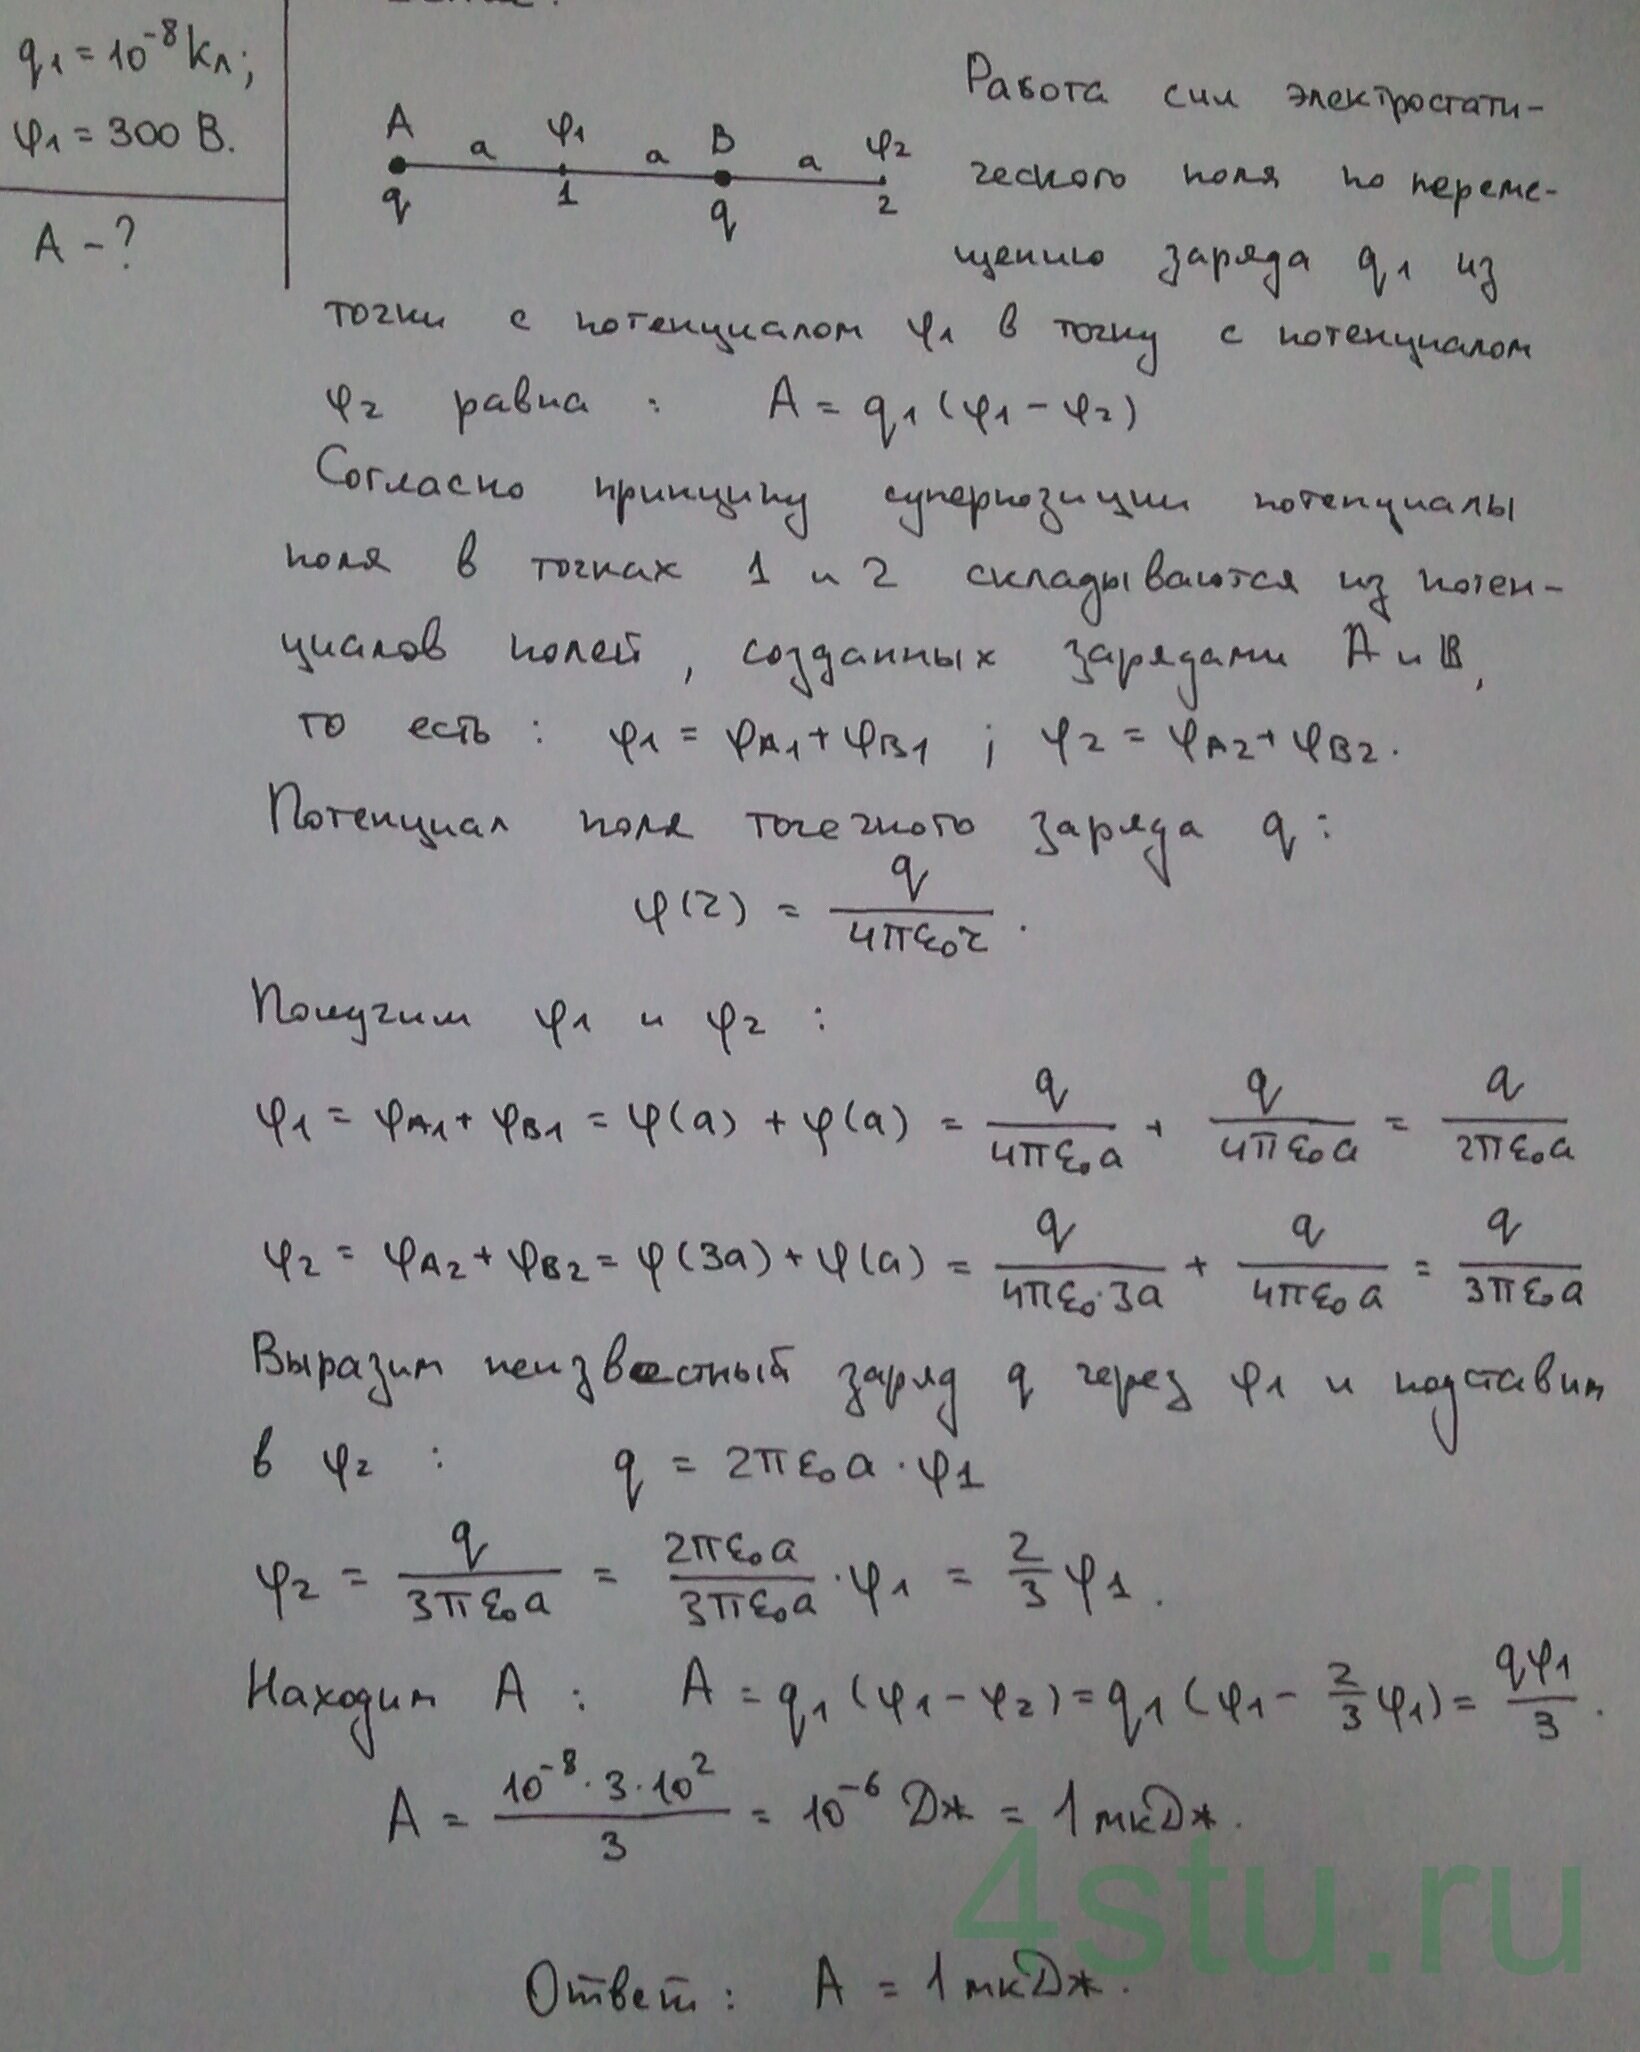 q₁ = 10⁻⁸ Кл;
φ₁ = 300 В.
A - ?
A a φ₁ a B a φ₂
q 1 q 2
Работа сил электростати-
ческого поля по переме-
щению заряда q₁ из
точки с потенциалом φ₁ в точку с потенциалом
φ₂ равна : A = q₁(φ₁ - φ₂)
Согласно принципу суперпозиции потенциалы
поля в точках 1 и 2 складываются из потен-
циалов полей, созданных зарядами A и B,
то есть : φ₁ = φA₁ + φB₁ ; φ₂ = φA₂ + φB₂.
Потенциал поля точечного заряда q :
φ(r) = q / 4πε₀r.
Получим φ₁ и φ₂ :
φ₁ = φA₁ + φB₁ = φ(a) + φ(a) = q / 4πε₀a + q / 4πε₀a = q / 2πε₀a
φ₂ = φA₂ + φB₂ = φ(3a) + φ(a) = q / 4πε₀·3a + q / 4πε₀a = q / 3πε₀a
Выразим неизвестный заряд q через φ₁ и подставим
в φ₂ : q = 2πε₀a · φ₁
φ₂ = q / 3πε₀a = 2πε₀a / 3πε₀a · φ₁ = 2/3 φ₁.
Находим A : A = q₁(φ₁ - φ₂) = q₁(φ₁ - 2/3 φ₁) = qφ₁ / 3.
A = 10⁻⁸ · 3 · 10² / 3 = 10⁻⁶ Дж = 1 мкДж.
4stu.ru
Ответ : A = 1 мкДж.